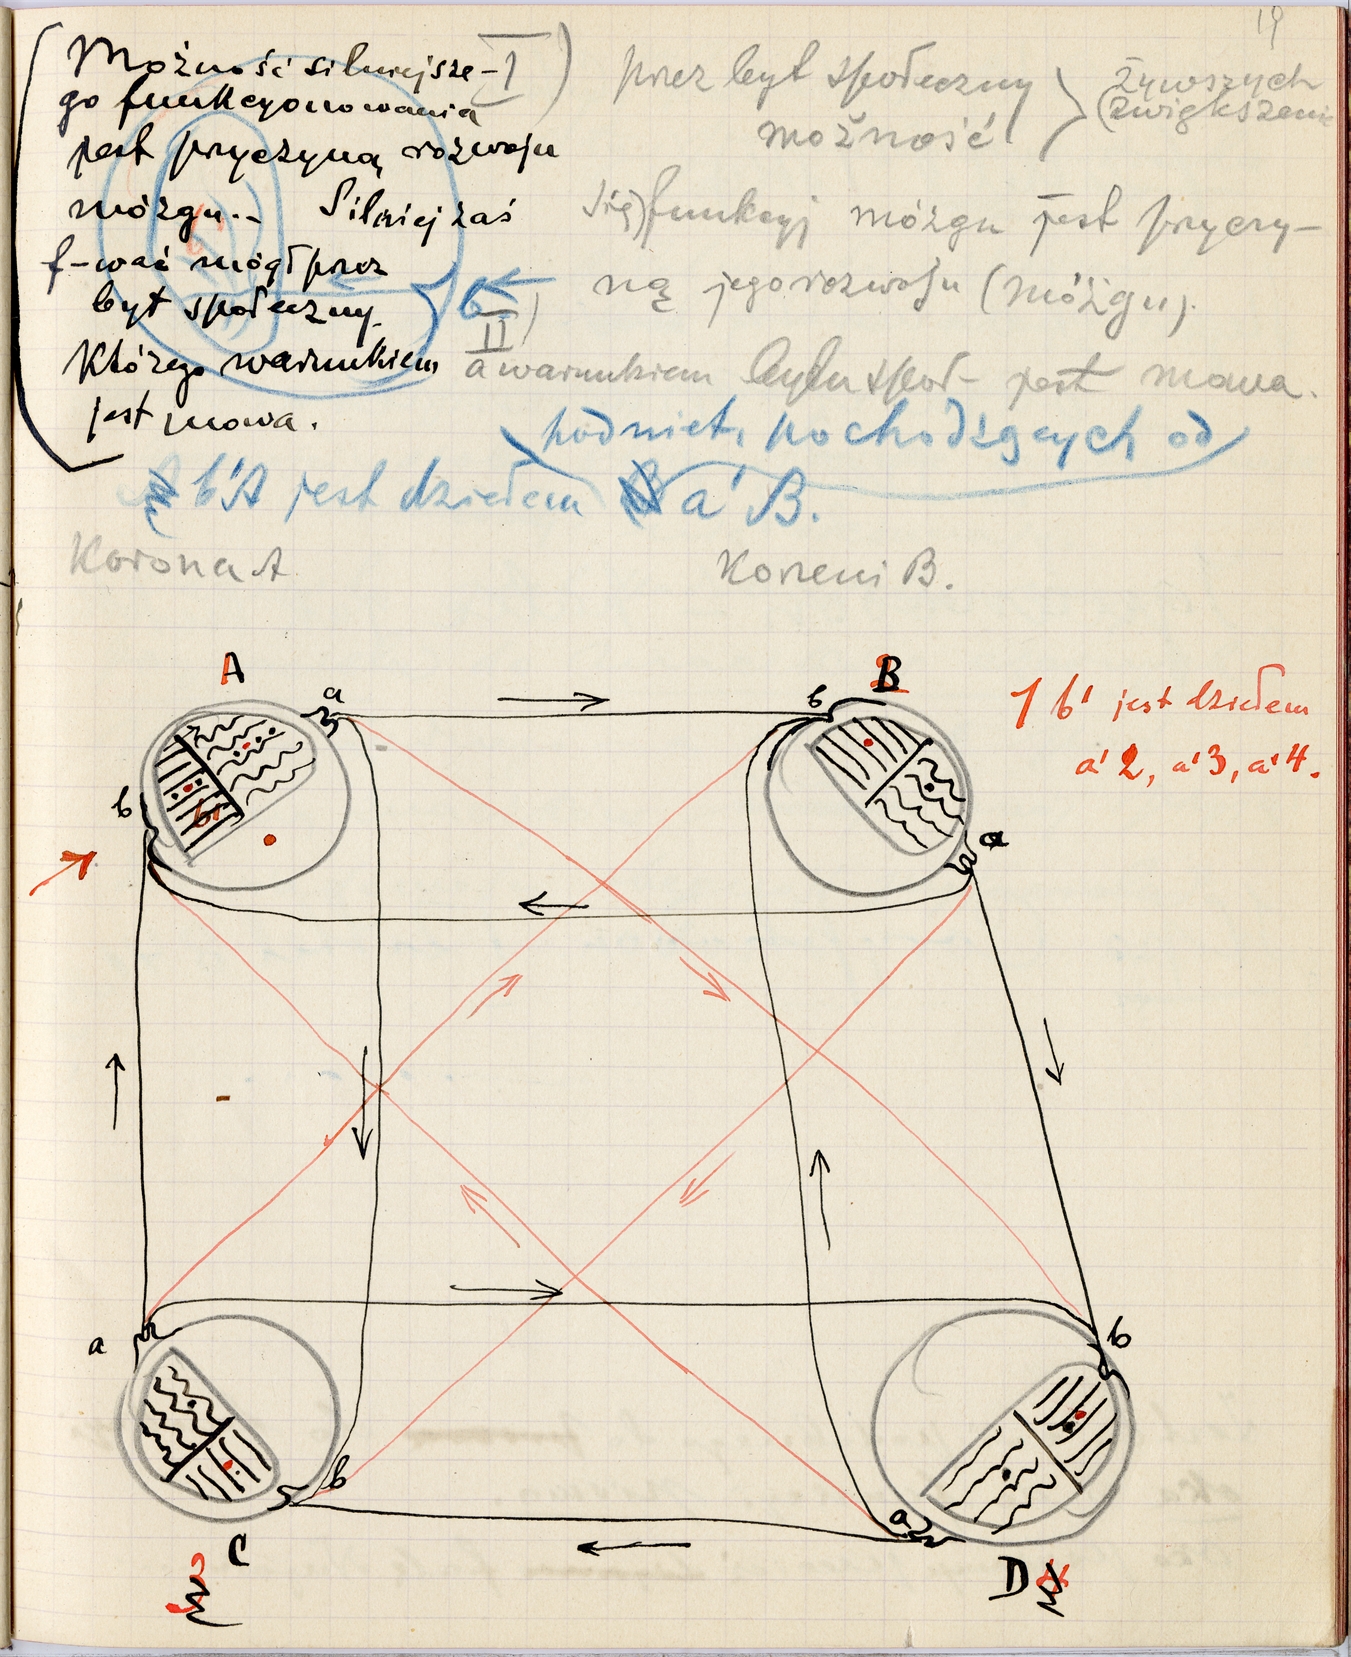 19
Możność silniejsze-
go funkcyonowania
jest przyczyną rozwoju
mózgu.- Silniej zaś
f-wać mógł przez
byt społeczny,
którego warunkiem
jest mowa.
I) przez byt społeczny
możność
żywszych
(zwiększenie
się) funkcyj mózgu jest przyczy-
ną jego rozwoju (mózgu).
II)
a warunkiem bytu społ- jest mowa.
podniet, pochodzących od
b'A jest dziełem a' B.
Korona A
Korzeni B.
A
a
b
B
1 b' jest dziełem
a' 2, a' 3, a' 4.
b
b'
a
a
b
b
a
C
D
3
4